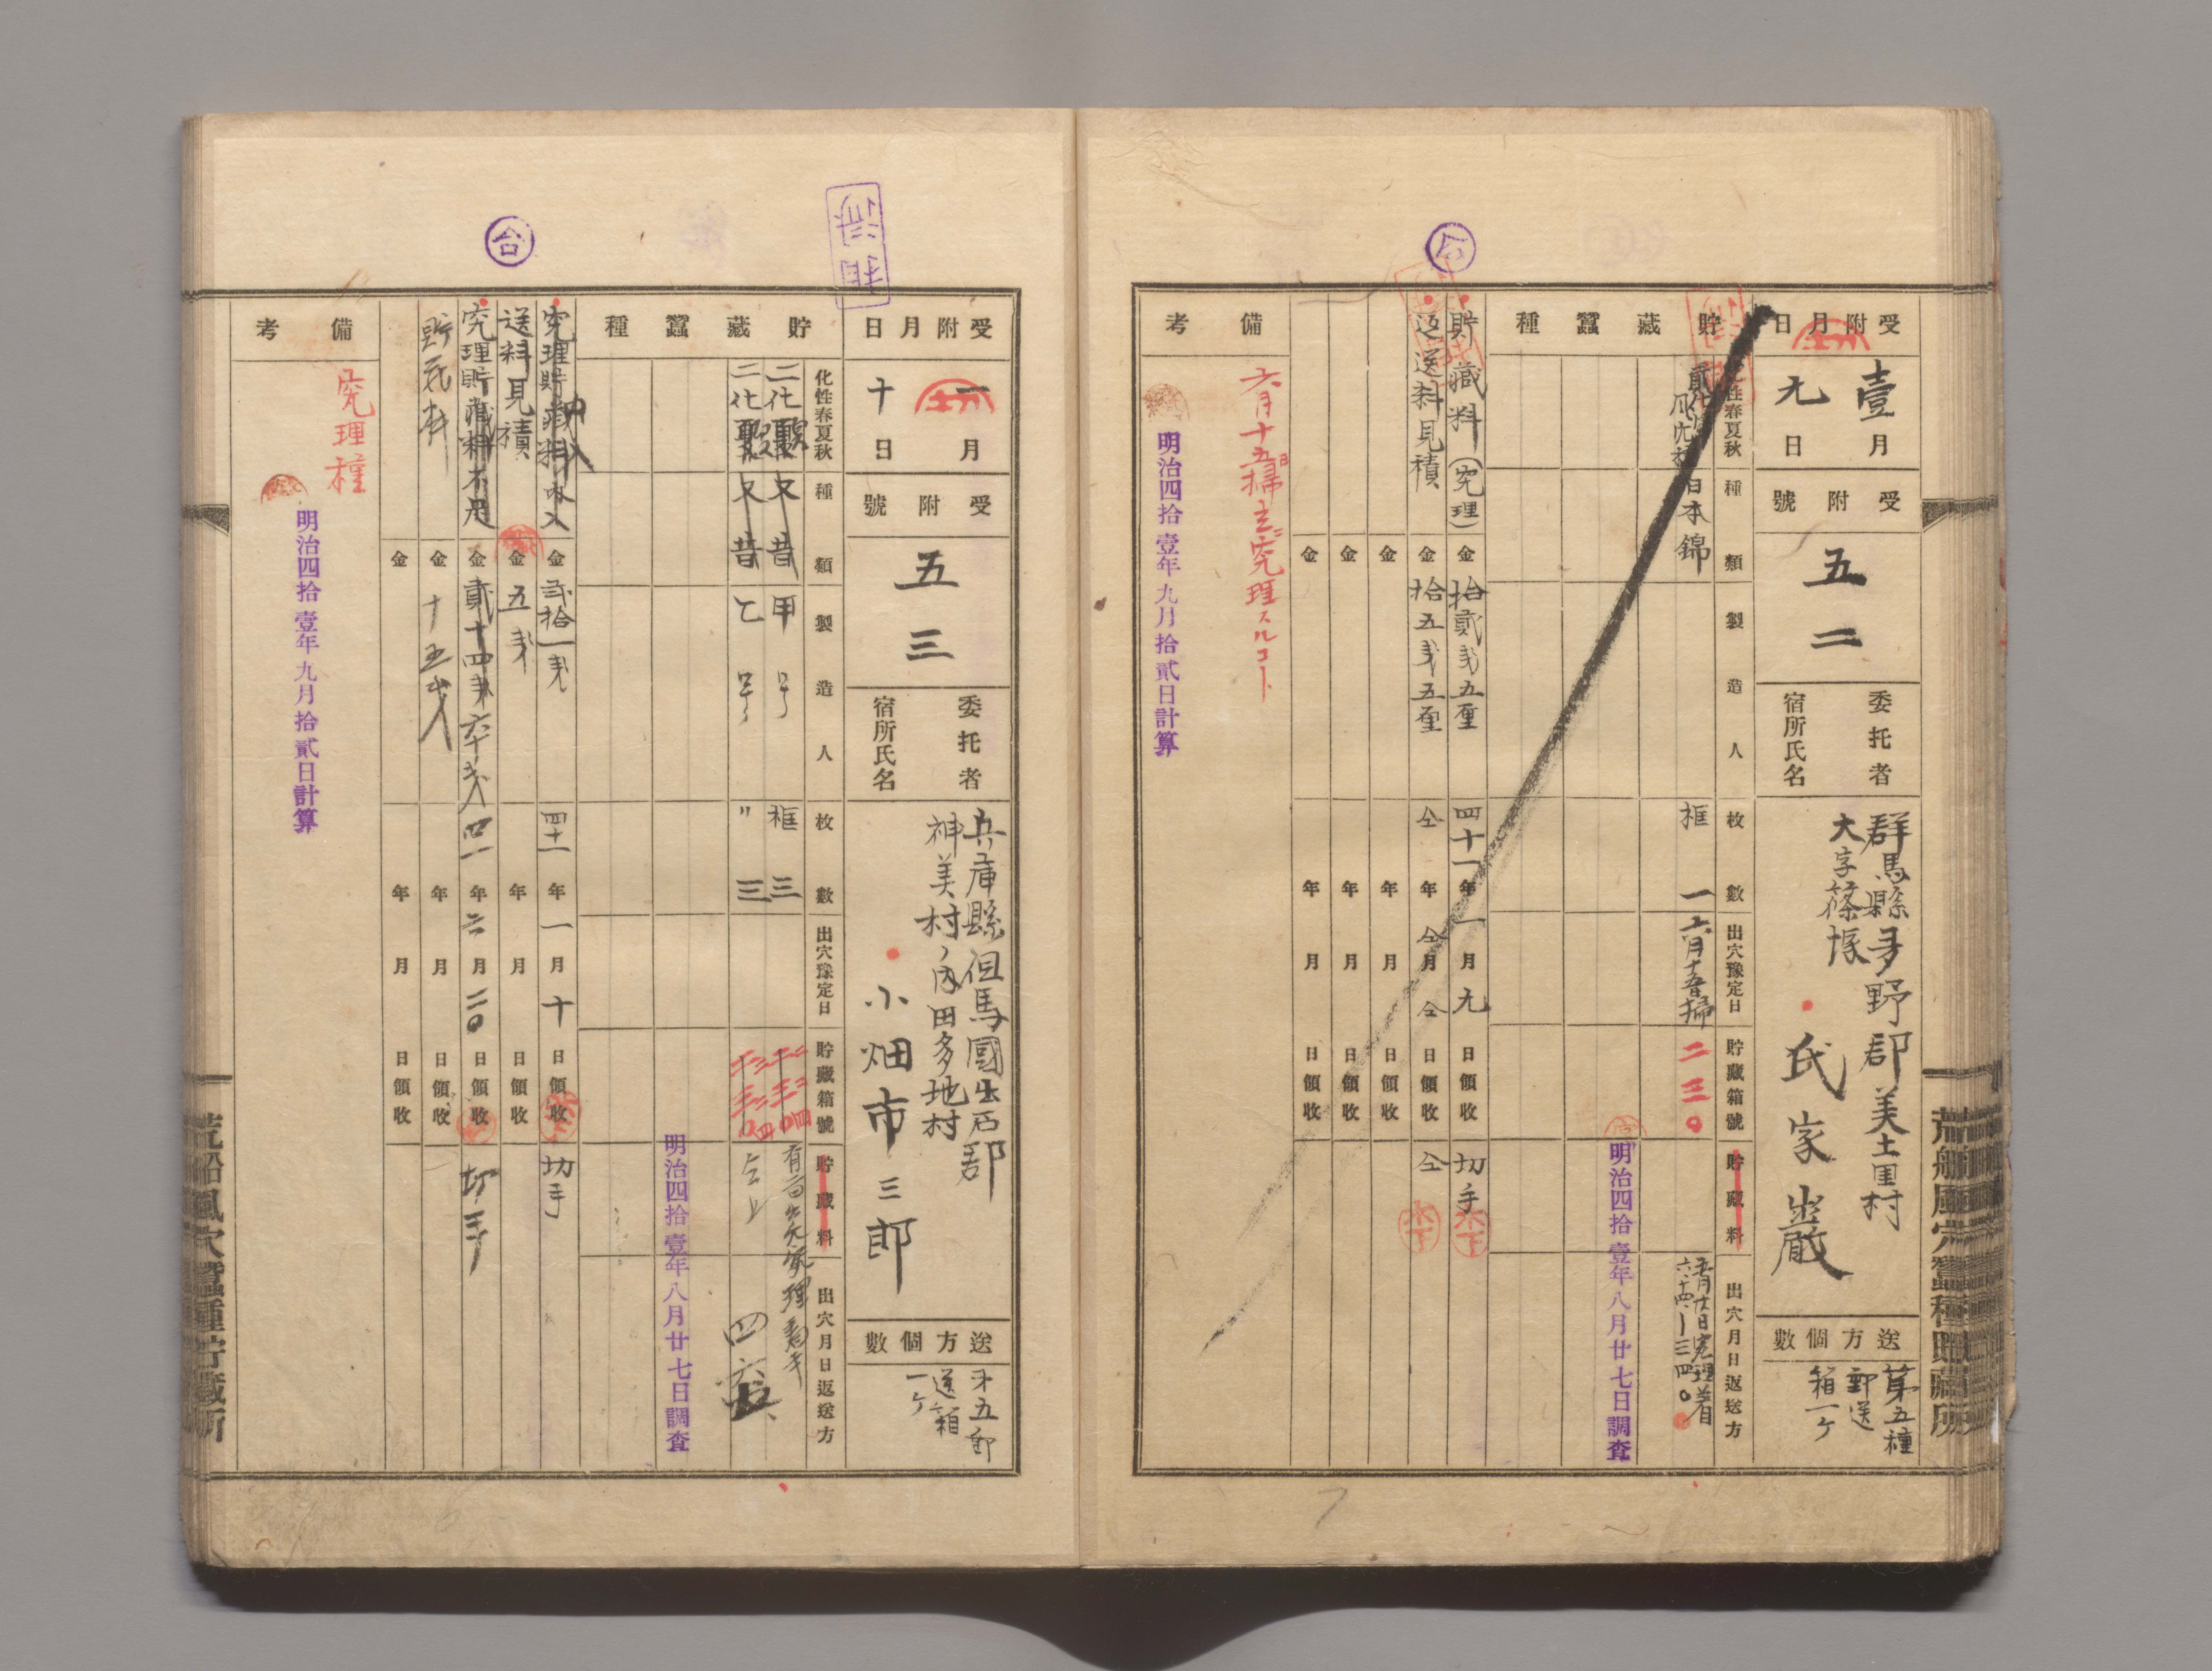 受附月日
壹月
九日
受附號
五二
委托者
宿所氏名
群馬縣多野郡美土里村
大字篠塚
氏家巌
送方個數
第五種
郵送
箱一ケ
貯藏蠶種
化性春夏秋
種類
製造人
枚數
出穴豫定日
貯藏箱號
貯藏料
出穴月日返送方
日本錦
框一
二三〇
明治四拾壹年八月廿七日調査
貯藏料(究理)
金拾貳戔五厘
四十一年一月九日領收
切手
返送料見積
金拾五戔五厘
仝年仝月仝日領收
仝
金 年 月 日領收
金 年 月 日領收
金 年 月 日領收
備考
六月十五日掃立ニ究理スルコト
明治四拾壹年九月拾貳日計算
荒船風穴蠶種貯藏所
合
受附月日
一月
十日
受附號
五三
委托者
宿所氏名
兵庫縣但馬國出石郡
神美村ノ内田多地村
小畑市三郎
送方個數
才五郵
送箱
一ケ
貯藏蠶種
化性春夏秋
種類
製造人
枚數
出穴豫定日
貯藏箱號
貯藏料
出穴月日返送方
二化 又昔 甲号 框三
二化 又昔 乙号 〃三
仝上
明治四拾壹年八月廿七日調査
究理貯藏料内入
金貳拾一戔
四十一年一月十日領收
切手
送料見積
金五戔
年 月 日領收
究理貯藏料不足
金貳十四戔
四一年六月二〇日領收
切手
金十五戔
年 月 日領收
金 年 月 日領收
備考
究理種
明治四拾壹年九月拾貳日計算
荒船風穴蠶種貯藏所